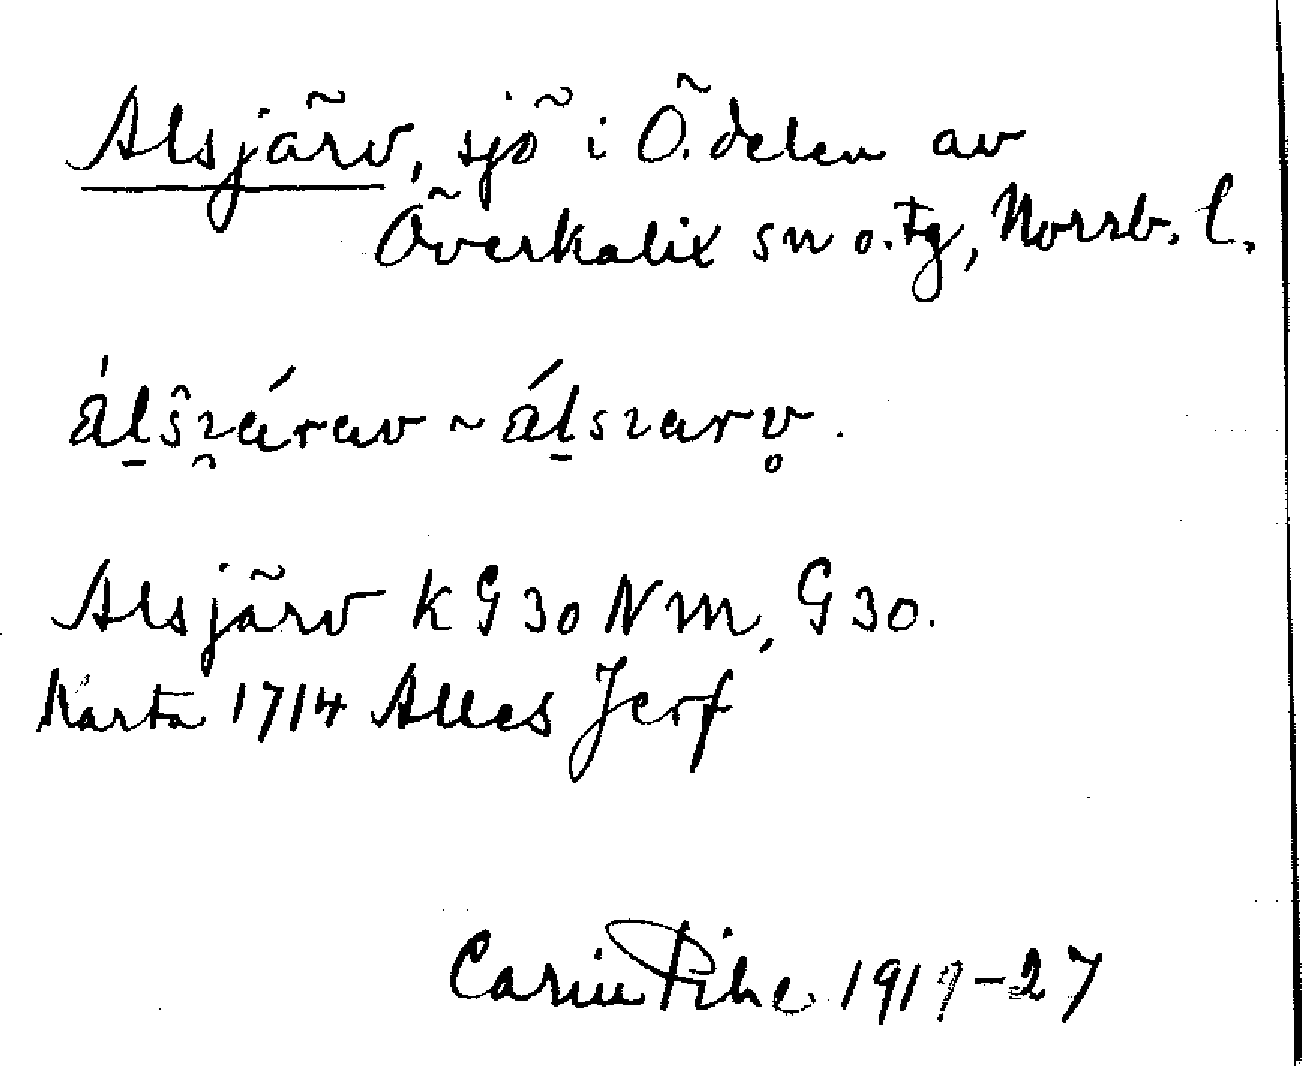 Alsjärv, sjö i Ö. delen av
Överkalix sn o. tg, Norrb. l.
áḻŝɿ̯árav ~ áḻsɿarv̥.
Alsjärv K G 30 NM, G 30.
Karta 1714 Alles Jerf
Carin Pihl 1919-27